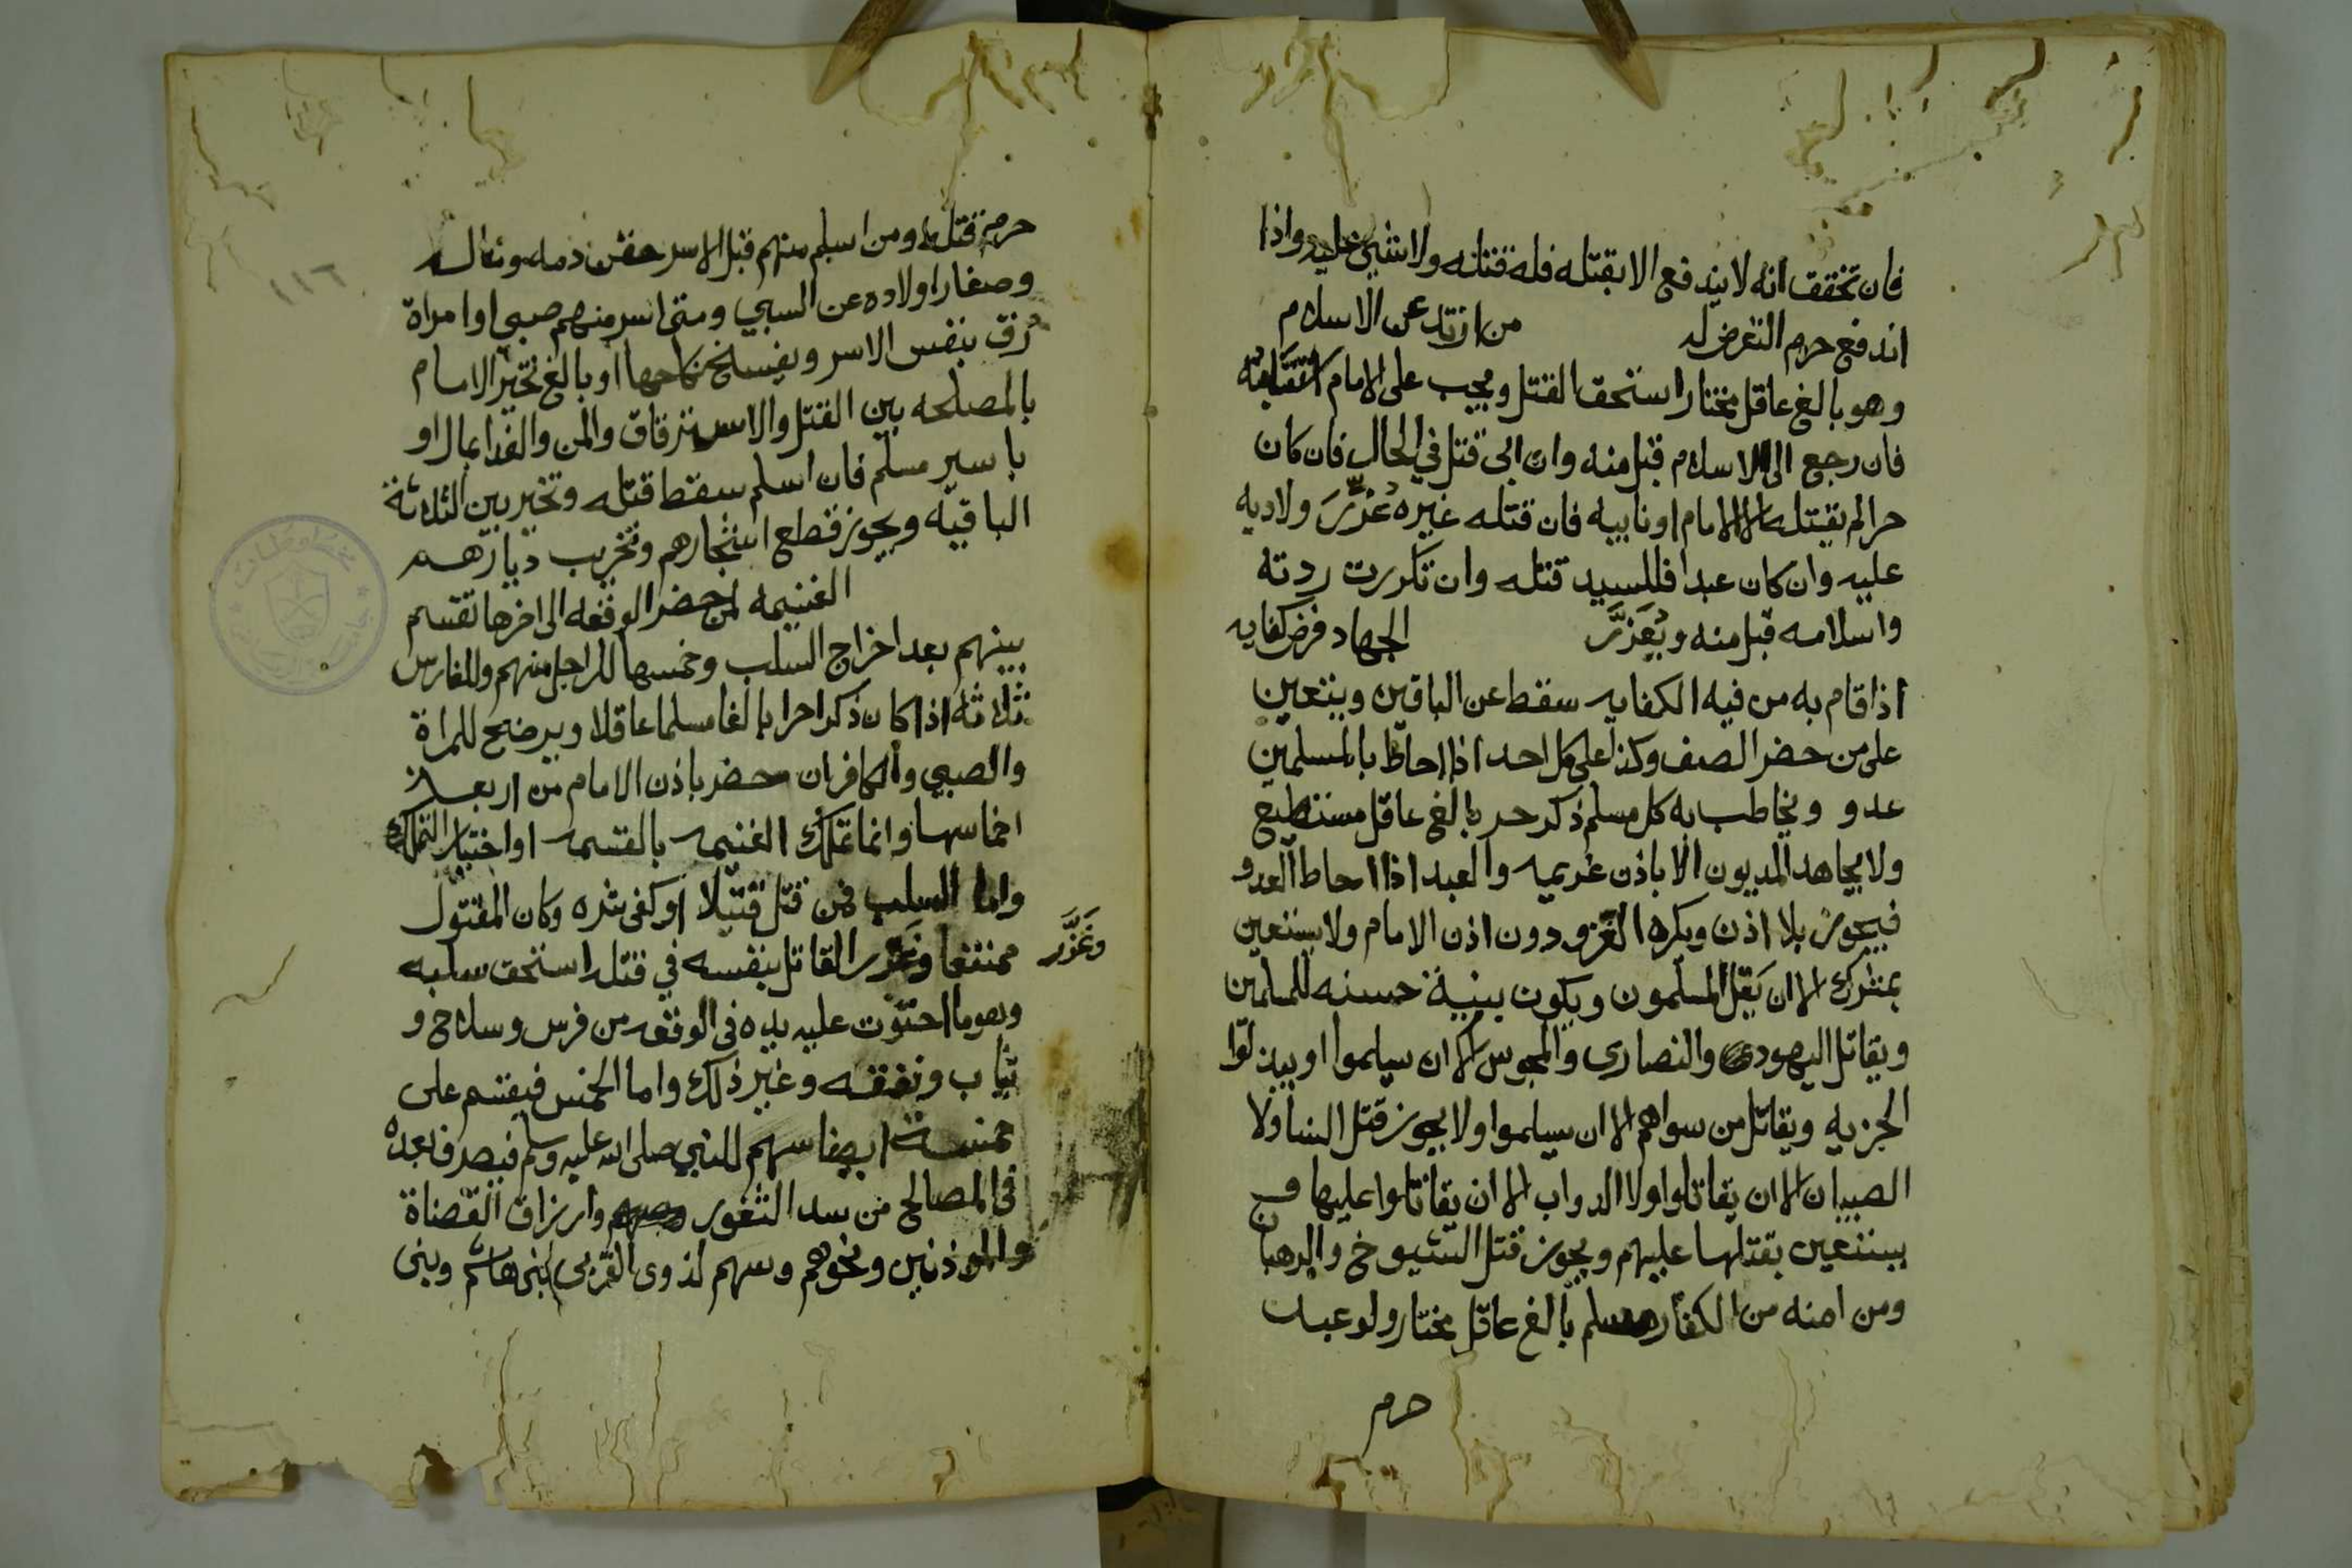 فان تحقق انه لا يندفع الا بقتله فله قتله ولا شي عليه واذا
اندفع حرم التعرض له من ارتد عن الاسلام
وهو بالغ عاقل مختار استحق القتل ويجب على الامام استتابته
فان رجع الى الاسلام قبل منه وان ابى قتل في الحال فان كان
حرا لم يقتله الا الامام او نايبه فان قتله غيره عُزِّرَ ولا ديه
عليه وان كان عبدا فللسيد قتله وان تكررت ردته
واسلامه قبل منه ويُعَزَّر الجهاد فرض كفايه
اذا قام به من فيه الكفايه سقط عن الباقين ويتعين
على من حضر الصف وكذا على كل احد اذا احاط بالمسلمين
عدو ويخاطب به كل مسلم ذكر حر بالغ عاقل مستطيع
ولا يجاهد المديون الا باذن غريمه والعبد اذا احاط العدو
فيجوز بلا اذن ويكره الغزو دون اذن الامام ولا يستعين
بمشرك الا ان يَقِل المسلمون ويكون بنية حسنه للمسلمين
ويقاتل اليهود والنصارى والمجوس الا ان يسلموا او يبذلوا
الجزيه ويقاتل من سواهم الا ان يسلموا ولا يجوز قتل النسا ولا
الصبيان الا ان يقاتلوا ولا الدواب الا ان يقاتلوا عليها او
يستعين بقتلها عليهم ويجوز قتل الشيوخ والرهبان
ومن امنه من الكفار مسلم بالغ عاقل مختار ولو عبد
حرم
١١٦
حرم قتله ومن اسلم منهم قبل الاسر حقن دمه وماله
وصغار اولاده عن السبي ومتى اسر منهم صبي او امراة
رُق بنفس الاسر وينفسخ نكاحها او بالغ تخير الامام
بالمصلحه بين القتل والاسترقاق والمن والفدا بمال او
باسير مسلم فان اسلم سقط قتله وتخير بين الثلاثة
الباقيه ويجوز قطع اشجارهم وتخريب ديارهم
الغنيمه لمن حضر الوقعه الى اخرها تقسم
بينهم بعد اخراج السلب وخمسها للراجل منهم وللفارس
ثلاثه اذا كان ذكرا حرا بالغا مسلما عاقلا ويرضخ للمراة
والصبي والكافر ان حضر باذن الامام من اربعة
اخماسها وانما تملك الغنيمه بالقسمه او اختيار التملك
واما السلب فمن قتل قتيلا او كفى شره وكان المقتول
ممتنعا وغرر القاتل بنفسه في قتله استحق سلبه
وغَرَّر
وهو ما احتوت عليه يده في الوقعه من فرس وسلاح و
ثياب ونفقه وغير ذلك واما الخمس فيقسم على
خمسة ايضا سهم للنبي صلى الله عليه وسلم فيصرف بعده
في المصالح من سد الثغور وارزاق القضاة
والموذنين ونحوهم وسهم لذوى القربى بنى هاشم وبنى